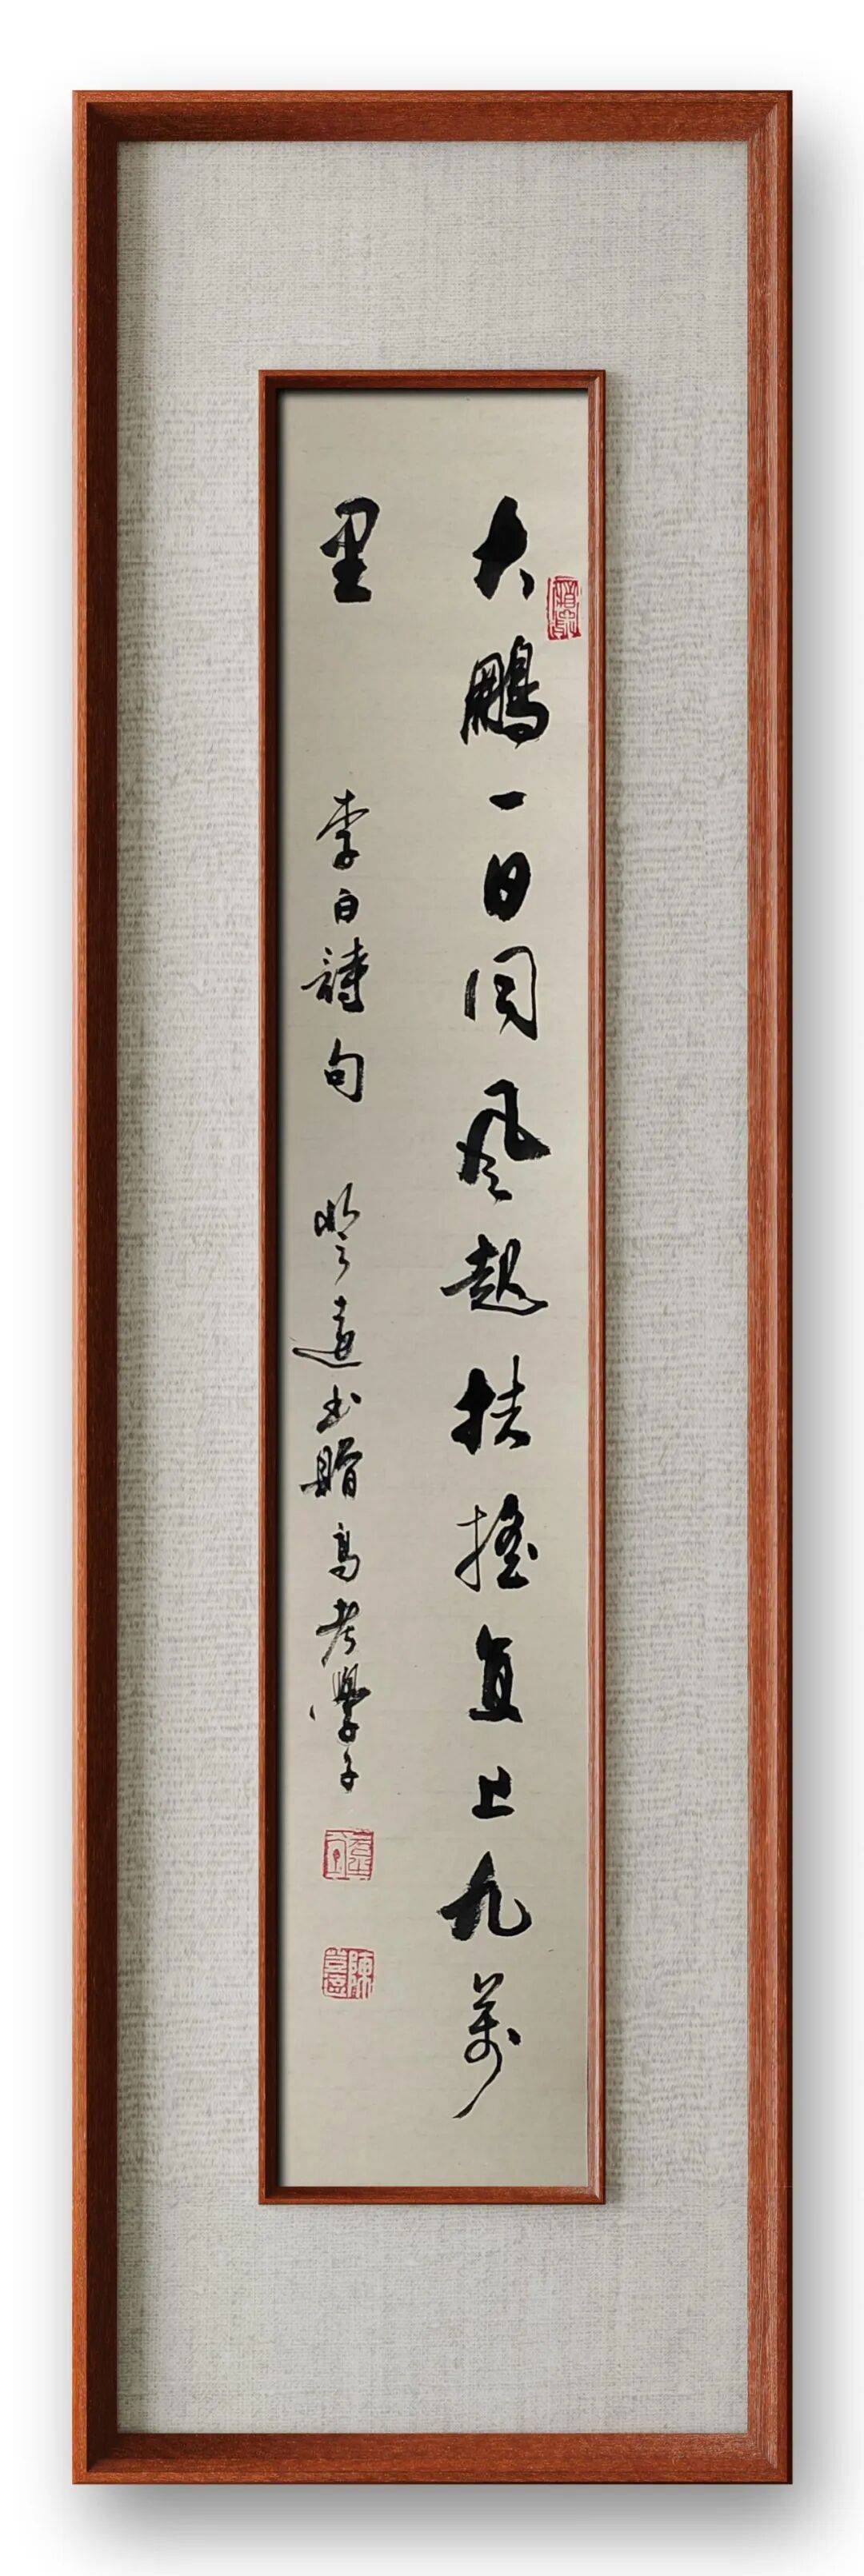 大鵬一日同風起扶搖直上九萬
里 李白詩句 遠书贈高考學子
陳